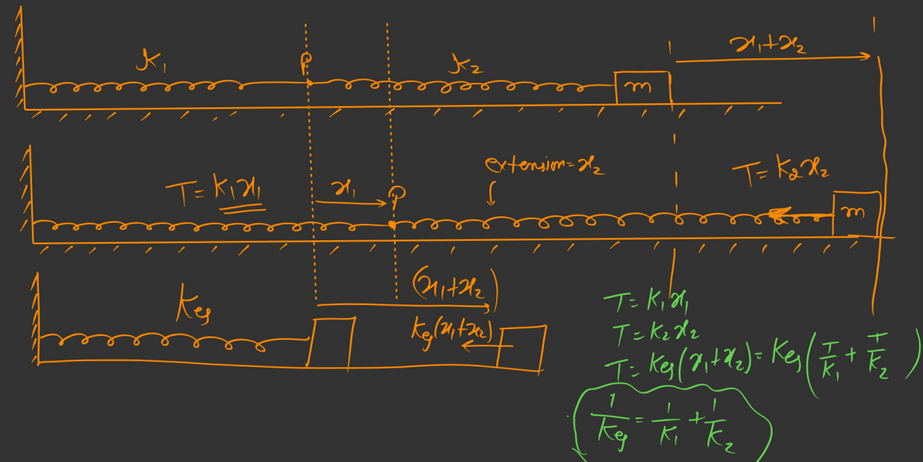 K₁
P
K₂
m
x₁+x₂
T = K₁x₁
x₁
P
extension = x₂
T = K₂x₂
m
Keq
(x₁+x₂)
Keq(x₁+x₂)
T = K₁x₁
T = K₂x₂
T = Keq(x₁+x₂) = Keq(T/K₁ + T/K₂)
1/Keq = 1/K₁ + 1/K₂